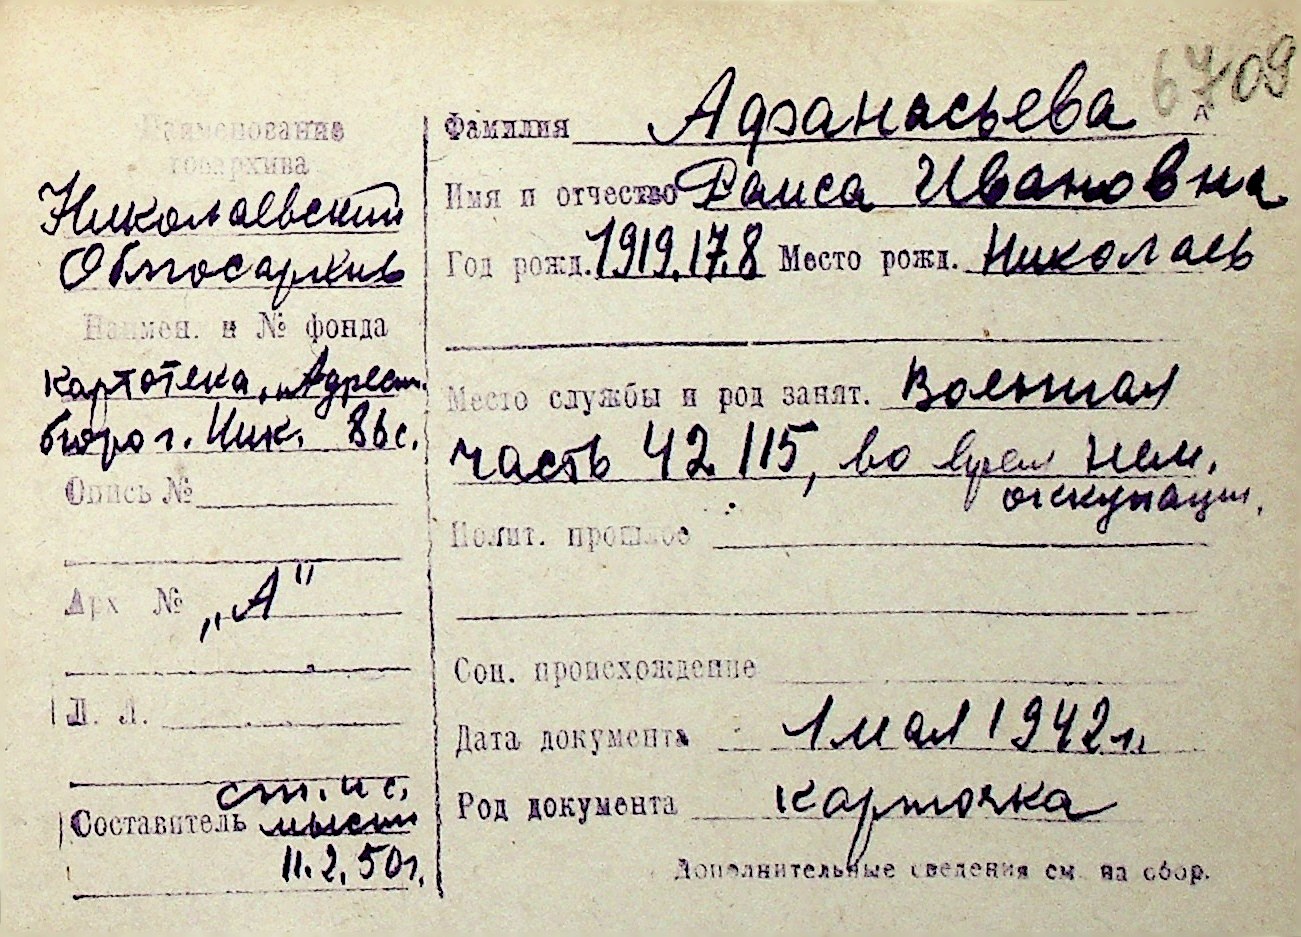 6709
А
Наименование
госархива
Николаевский
Облгосархив
Наимен. и № фонда
картотека „Адресн.
бюро г. Ник. 86 с.
Опись №
Арх №
„А"
Л. Л.
ст. н с.
Составитель
11.2.50г.
Фамилия Афанасьева
Имя и отчество Раиса Ивановна
Год рожд. 1919.17.8 Место рожд. Николаев
Место службы и род занят. Военная
часть 42115, во врем нем.
оккупации.
Полит. прошлое
Соц. происхождение
Дата документа 1 мая 1942 г.
Род документа карточка
Дополнительные сведения см. на обор.